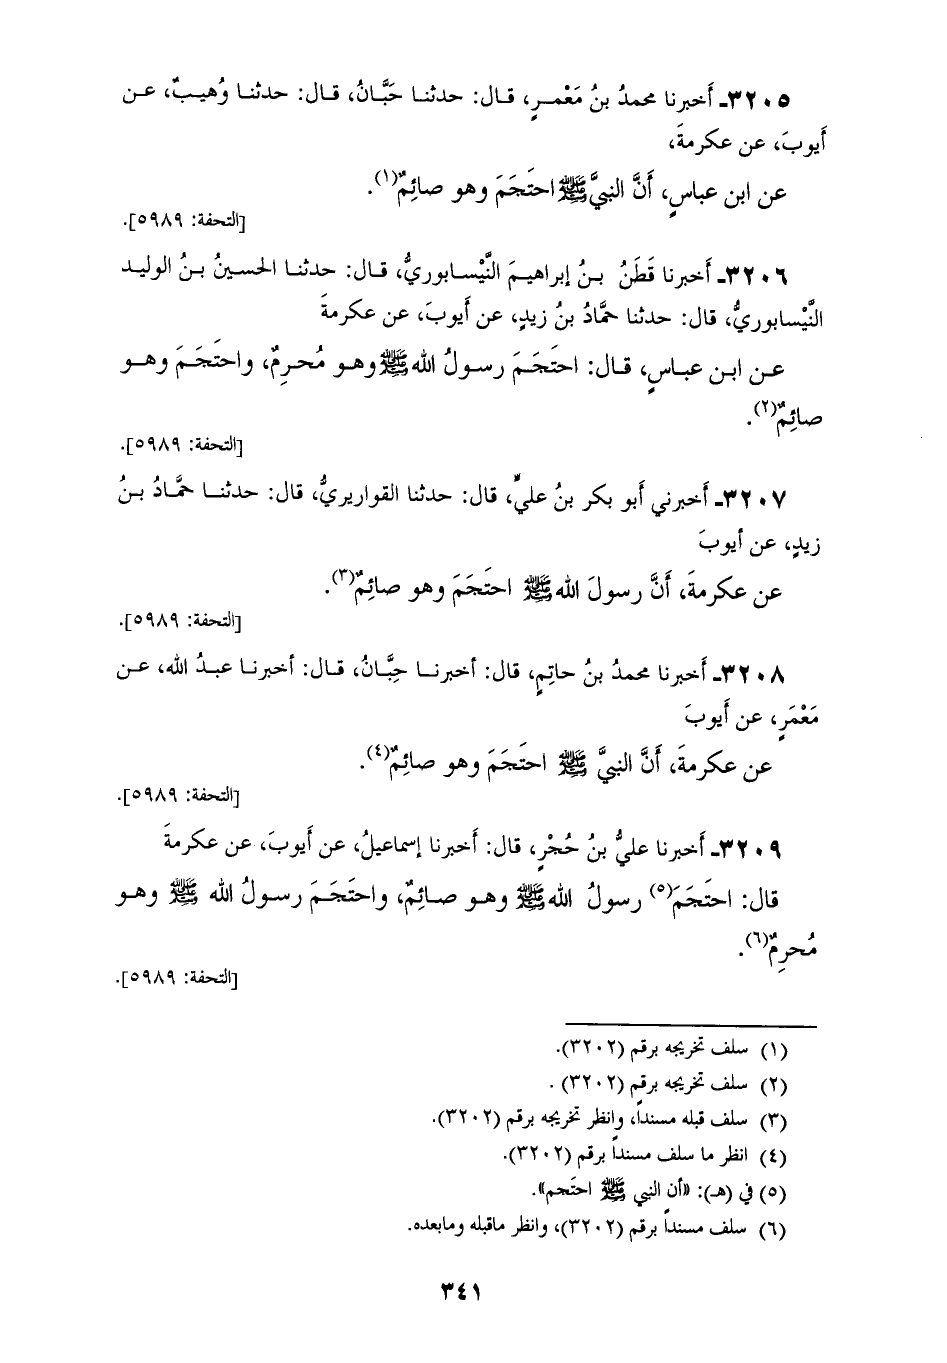 ٣٢٠٥ـ أَخبرنا محمدُ بنُ مَعْمرٍ، قال: حدثنا حَبَّانُ، قال: حدثنا وُهيبٌ، عن
أَيوبَ، عن عكرمةَ،
عن ابن عباسٍ، أَنَّ النبيَّ ﷺ احتَجَمَ وهو صائِمٌ(١).
[التحفة: ٥٩٨٩].
٣٢٠٦ـ أَخبرنا قَطَنُ بنُ إبراهيمَ النَّيْسابوريُّ، قال: حدثنا الحسينُ بنُ الوليد
النَّيْسابوريُّ، قال: حدثنا حمَّادُ بنُ زيدٍ، عن أَيوبَ، عن عكرمةَ
عن ابن عباسٍ، قال: احتَجَمَ رسولُ الله ﷺ وهو مُحرِمٌ، واحتَجَمَ وهو
صائِمٌ(٢).
[التحفة: ٥٩٨٩].
٣٢٠٧ـ أَخبرني أَبو بكر بنُ عليٍّ، قال: حدثنا القواريريُّ، قال: حدثنا حمَّادُ بنُ
زيدٍ، عن أيوبَ
عن عكرمةَ، أَنَّ رسولَ الله ﷺ احتَجَمَ وهو صائِمٌ(٣).
[التحفة: ٥٩٨٩].
٣٢٠٨ـ أَخبرنا محمدُ بنُ حاتِمٍ، قال: أخبرنا حِبَّانُ، قال: أخبرنا عبدُ الله، عن
مَعْمَرٍ، عن أَيوبَ
عن عكرمةَ، أَنَّ النبيَّ ﷺ احتَجَمَ وهو صائِمٌ(٤).
[التحفة: ٥٩٨٩].
٣٢٠٩ـ أَخبرنا عليُّ بنُ حُجْرٍ، قال: أَخبرنا إسماعيلُ، عن أَيوبَ، عن عكرمةَ
قال: احتَجَمَ(٥) رسولُ الله ﷺ وهو صائِمٌ، واحتَجَمَ رسولُ الله ﷺ وهو
مُحرِمٌ(٦).
[التحفة: ٥٩٨٩].
(١) سلف تخريجه برقم (٣٢٠٢).
(٢) سلف تخريجه برقم (٣٢٠٢) .
(٣) سلف قبله مسنداً، وانظر تخريجه برقم (٣٢٠٢).
(٤) انظر ما سلف مسنداً برقم (٣٢٠٢).
(٥) في (هـ): «أن النبي ﷺ احتجم».
(٦) سلف مسنداً برقم (٣٢٠٢)، وانظر ماقبله ومابعده.
٣٤١